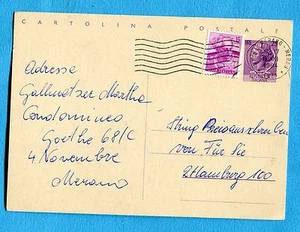 CARTOLINA POSTALE
Adresse
Gallmetzer Martha
Condominio
Goethe 68/C
4 Novembre
Merano
Sting Preisausschreiben
von Für Sie
2 Hamburg 100